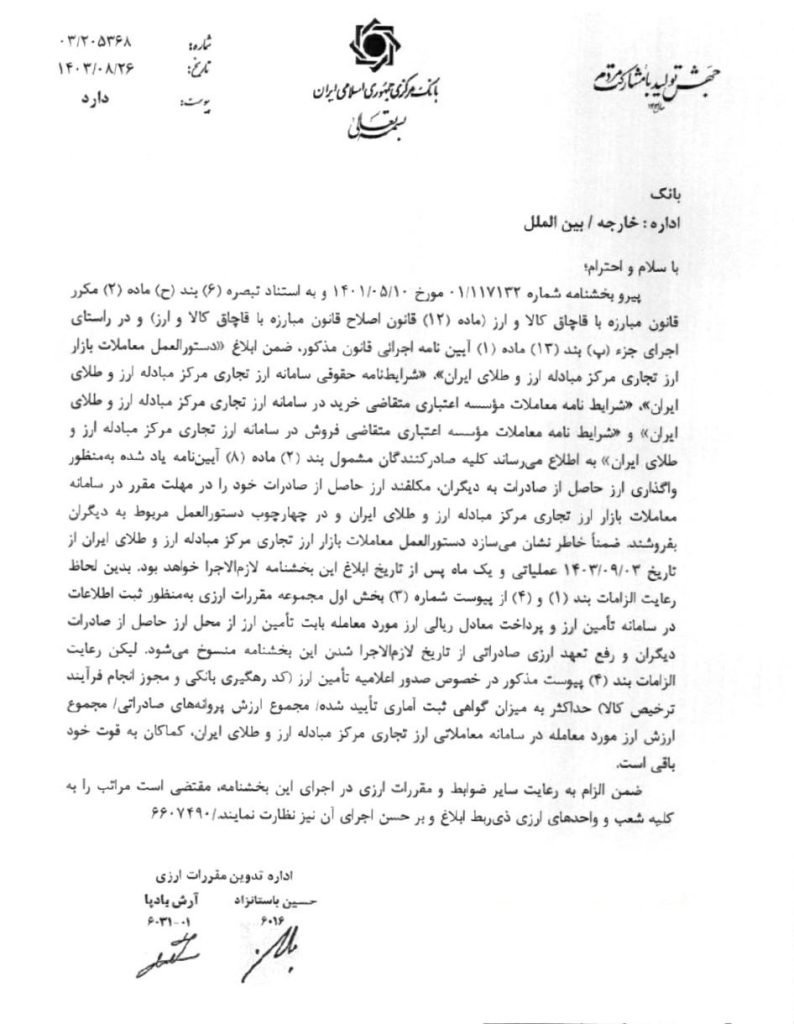 شماره: ۰۳/۲۰۵۳۶۸
تاریخ: ۱۴۰۳/۰۸/۲۶
پیوست: دارد
بانک مرکزی جمهوری اسلامی ایران
بسمه تعالی
جهش تولید با مشارکت مردم
بانک
اداره: خارجه / بین الملل
با سلام و احترام؛
پیرو بخشنامه شماره ۰۱/۱۱۷۱۳۲ مورخ ۱۴۰۱/۰۵/۱۰ و به استناد تبصره (۶) بند (ح) ماده (۲) مکرر
قانون مبارزه با قاچاق کالا و ارز (ماده (۱۲) قانون اصلاح قانون مبارزه با قاچاق کالا و ارز) و در راستای
اجرای جزء (پ) بند (۱۳) ماده (۱) آیین نامه اجرائی قانون مذکور، ضمن ابلاغ «دستورالعمل معاملات بازار
ارز تجاری مرکز مبادله ارز و طلای ایران»، «شرایط‌نامه حقوقی سامانه ارز تجاری مرکز مبادله ارز و طلای
ایران»، «شرایط نامه معاملات مؤسسه اعتباری متقاضی خرید در سامانه ارز تجاری مرکز مبادله ارز و طلای
ایران» و «شرایط نامه معاملات مؤسسه اعتباری متقاضی فروش در سامانه ارز تجاری مرکز مبادله ارز و
طلای ایران» به اطلاع می‌رساند کلیه صادرکنندگان مشمول بند (۲) ماده (۸) آیین‌نامه یاد شده به‌منظور
واگذاری ارز حاصل از صادرات به دیگران، مکلفند ارز حاصل از صادرات خود را در مهلت مقرر در سامانه
معاملات بازار ارز تجاری مرکز مبادله ارز و طلای ایران و در چهارچوب دستورالعمل مربوط به دیگران
بفروشند. ضمناً خاطر نشان می‌سازد دستورالعمل معاملات بازار ارز تجاری مرکز مبادله ارز و طلای ایران از
تاریخ ۱۴۰۳/۰۹/۰۳ عملیاتی و یک ماه پس از تاریخ ابلاغ این بخشنامه لازم‌الاجرا خواهد بود. بدین لحاظ
رعایت الزامات بند (۱) و (۴) از پیوست شماره (۳) بخش اول مجموعه مقررات ارزی به‌منظور ثبت اطلاعات
در سامانه تأمین ارز و پرداخت معادل ریالی ارز مورد معامله بابت تأمین ارز از محل ارز حاصل از صادرات
دیگران و رفع تعهد ارزی صادراتی از تاریخ لازم‌الاجرا شدن این بخشنامه منسوخ می‌شود. لیکن رعایت
الزامات بند (۴) پیوست مذکور در خصوص صدور اعلامیه تأمین ارز (کد رهگیری بانکی و مجوز انجام فرآیند
ترخیص کالا) حداکثر به میزان گواهی ثبت آماری تأیید شده/ مجموع ارزش پروانه‌های صادراتی/ مجموع
ارزش ارز مورد معامله در سامانه معاملاتی ارز تجاری مرکز مبادله ارز و طلای ایران، کماکان به قوت خود
باقی است.
ضمن الزام به رعایت سایر ضوابط و مقررات ارزی در اجرای این بخشنامه، مقتضی است مراتب را به
کلیه شعب و واحدهای ارزی ذی‌ربط ابلاغ و بر حسن اجرای آن نیز نظارت نمایند./۶۶۰۷۴۹۰
اداره تدوین مقررات ارزی
حسین باستانزاد آرش یادپا
۶۰۱۶ ۶۰۳۱-۰۱